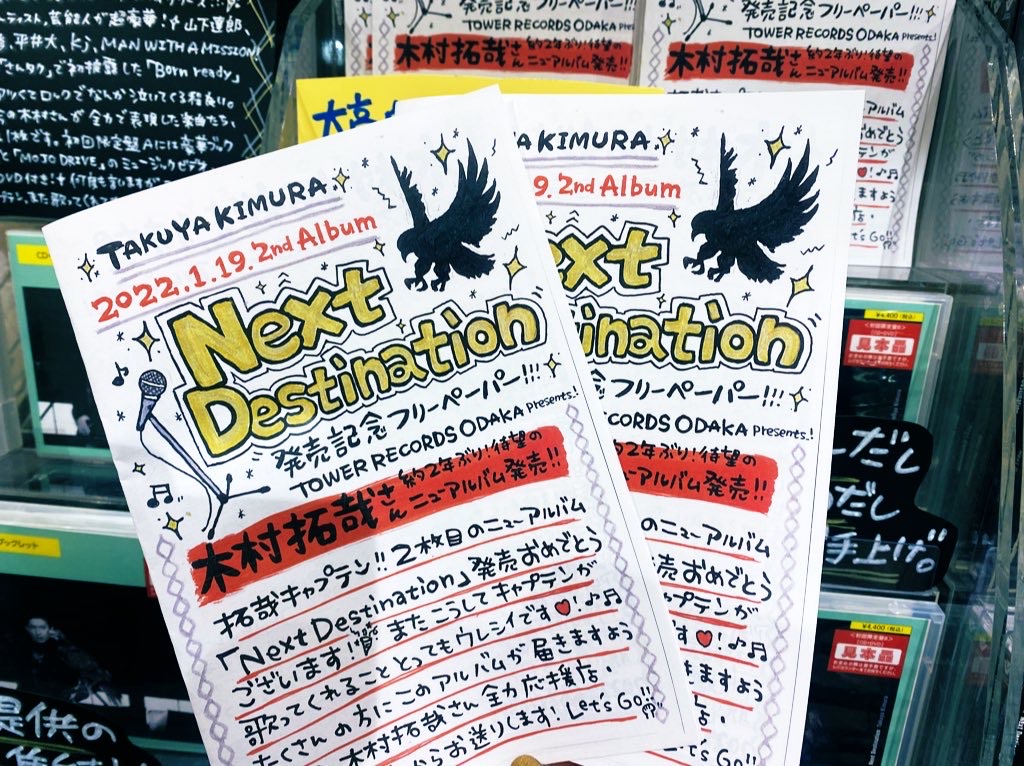 ティスト、芸能人が超豪華!! 山下達郎、
平井大、Kj、MAN WITH A MISSION
「さんタク」で初披露した「Born ready」
クてロックでなんか泣いてくる程良い。
の木村さんが全力で表現した楽曲たち、
1枚です。初回限定盤Aには豪華ブック
と「MOJO DRIVE」のミュージックビデオ
DVD付き!!
発売記念フリーペーパー!!!
TOWER RECORDS ODAKA Presents..!
木村拓哉さん 約2年ぶり!待望の
ニューアルバム発売!!
発売記念フリーペーパー!!!
TOWER RECORDS ODAKA Presents..!
木村拓哉さん 約2年ぶり!待望の
ニューアルバム発売!!
TAKUYA KIMURA.
2022.1.19. 2nd Album
Next
Destination
発売記念フリーペーパー!!!
TOWER RECORDS ODAKA Presents..!
木村拓哉さん 約2年ぶり!待望の
ニューアルバム発売!!
拓哉キャプテン!! 2枚目のニューアルバム
「Next Destination」発売おめでとう
ございます! またこうしてキャプテンが
歌ってくれることとってもウレシイです♥!♪♬
たくさんの方にこのアルバムが届きますよう
木村拓哉さん全力応援店.
からお送りします! Let's Go!!
A KIMURA.
9. 2nd Album
ext
ination
フリーペーパー!!!
CORDS ODAKA Presents..!
約2年ぶり!待望の
ニューアルバム発売!!
のニューアルバム
売おめでとう
プテンが
す♥!♪♬
きますよう
店.
Let's Go!!
アルバム
めでとう
ンが
!♪♬
ますよう
店.
et's Go!!
¥4,400(税込)
見本品
だし
だし
手上げ。
¥4,400(税込)
見本品
ブックレット
提供の